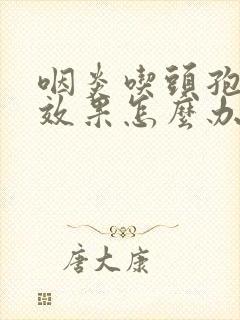 咽炎喫頭孢
效果怎麼办
唐大康